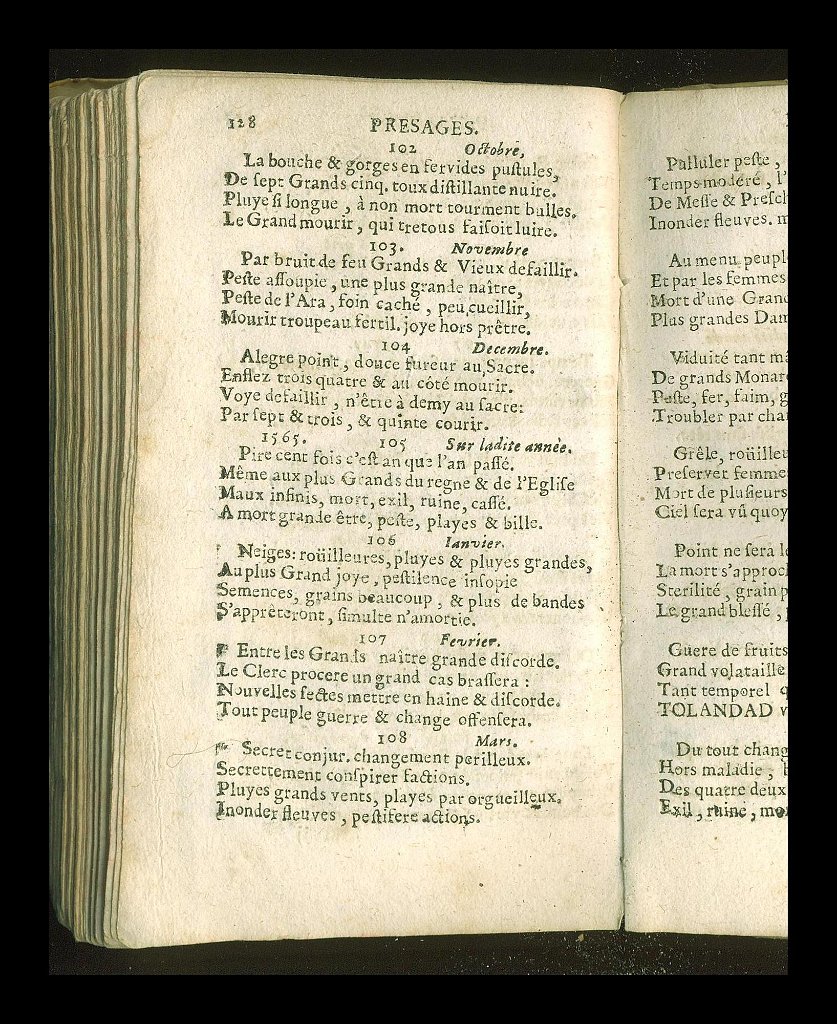 128 PRESAGES.
102 Octobre,
La bouche & gorges en fervides pustules,
De sept Grands cinq. toux distillante nuire.
Pluye si longue, à non mort tourment bulles.
Le Grand mourir, qui tretous faisoit luire.
103. Novembre
Par bruit de feu Grands & Vieux defaillir.
Peste assoupie, une plus grande naître,
Peste de l'Ara, foin caché, peu cueillir,
Mourir troupeau fertil. joye hors prêtre.
104 Decembre.
Alegre point, douce fureur au Sacre.
Enflez trois quatre & au côté mourir.
Voye defaillir, n'être à demy au sacre:
Par sept & trois, & quinte courir.
1565. 105 Sur ladite année.
Pire cent fois c'est an que l'an passé.
Même aux plus Grands du regne & de l'Eglise
Maux infinis, mort, exil, ruine, cassé.
A mort grande être, peste, playes & bille.
106 Ianvier.
Neiges: roüilleures, pluyes & pluyes grandes,
Au plus Grand joye, pestilence insopie
Semences, grains beaucoup, & plus de bandes
S'apprêteront, simulte n'amortie.
107 Fevrier.
Entre les Grands naître grande discorde.
Le Clerc procere un grand cas brassera:
Nouvelles sectes mettre en haine & discorde.
Tout peuple guerre & change offensera.
108 Mars.
Secret conjur. changement perilleux.
Secrettement conspirer factions.
Pluyes grands vents, playes par orgueilleux.
Inonder fleuves, pestifere actions.
Pulluler peste,
Temps moderé, l'
De Messe & Presch
Inonder fleuves. m
Au menu peupl
Et par les femmes
Mort d'une Grand
Plus grandes Dam
Viduité tant mâ
De grands Monar
Peste, fer, faim, g
Troubler par cha
Grêle, roüilleu
Preserver femme
Mort de plusieurs
Ciel sera vû quoy
Point ne sera le
La mort s'approch
Sterilité, grain p
Le grand blessé,
Guere de fruits
Grand volataille
Tant temporel q
TOLANDAD v
Du tout chang
Hors maladie,
Des quatre deux
Exil, ruine, mo